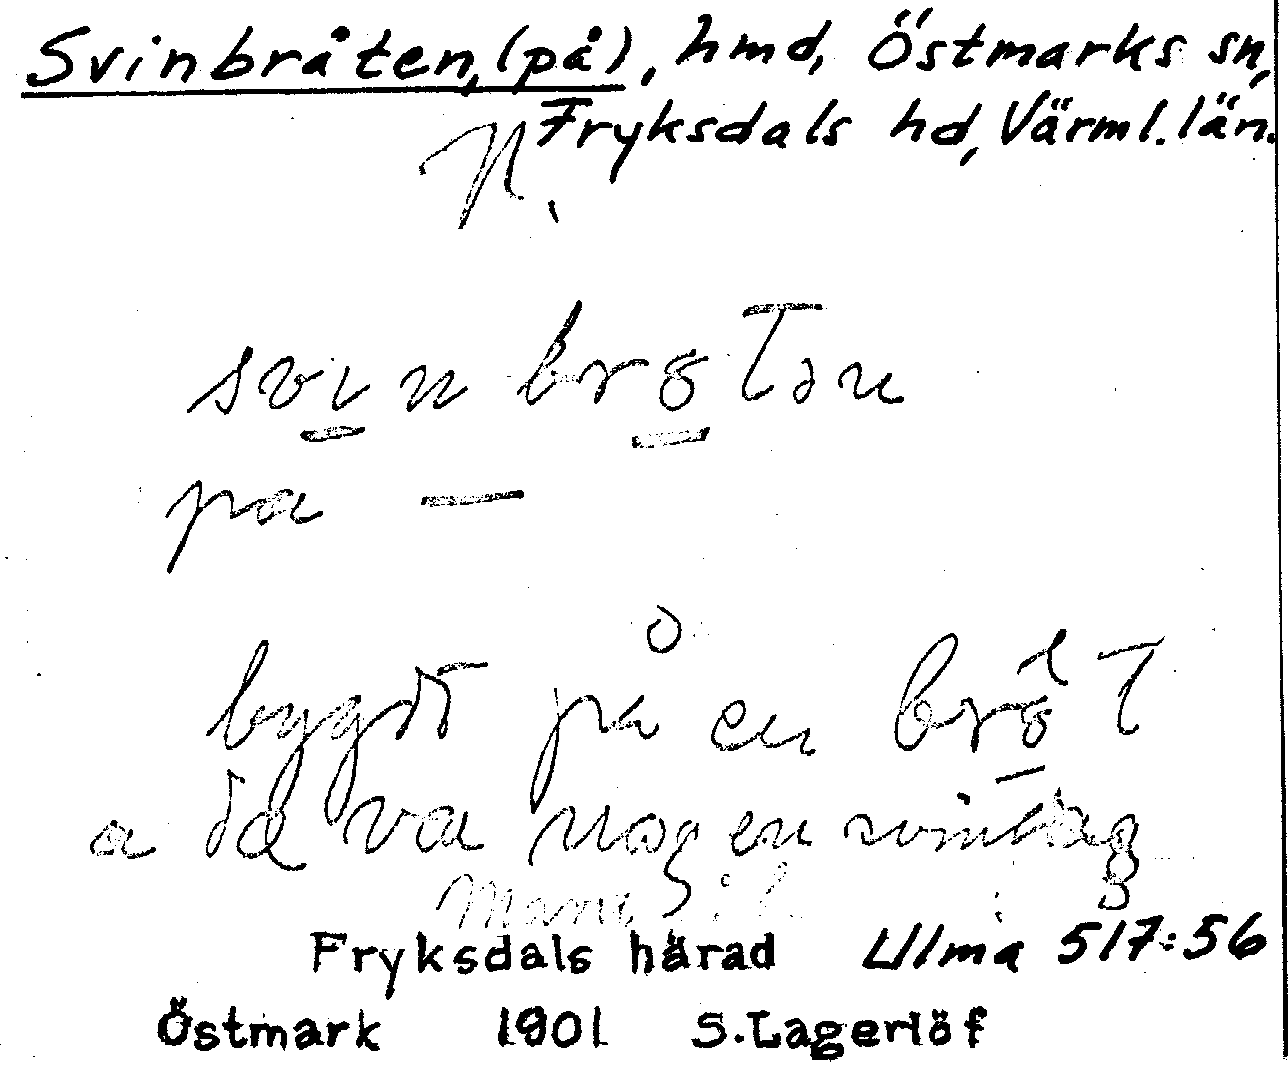 Svinbråten, (på), hmd, Östmarks sn,
Fryksdals hd, Värml. län.
N.
svin brotən
pa —
bygdt på en brot
a dä va nog en
Fryksdals härad Ulma 517:56
Östmark 1901 S. Lagerlöf